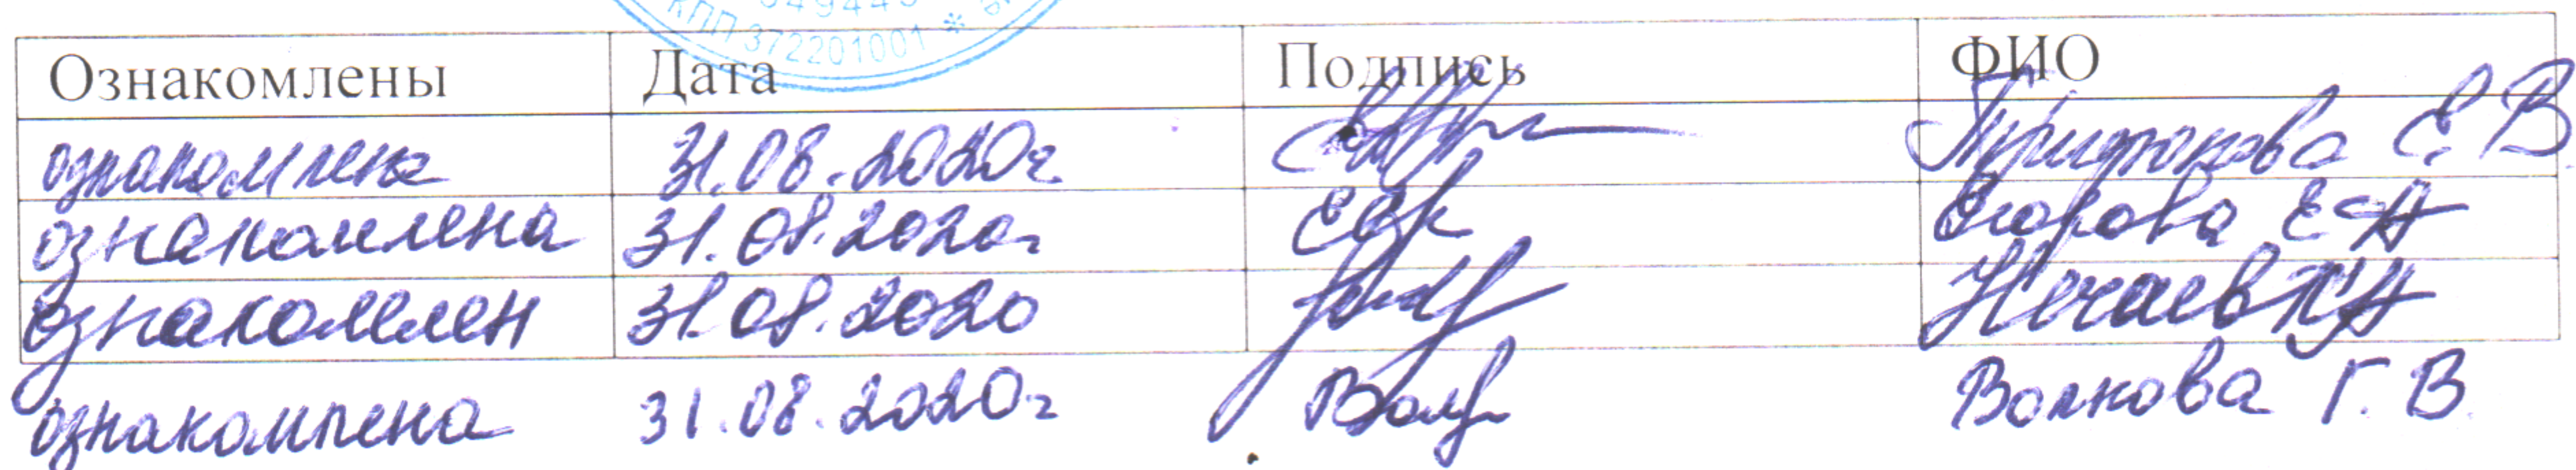 349445
КПП 372201001 *
Ознакомлены Дата Подпись ФИО
ознакомлена 31.08.2020г. Е. В.
ознакомлена 31.08.2020г Егорова Е А
Ознакомлен 31.08.2020 Нечаев А
ознакомлена 31.08.2020г Волкова Г. В.